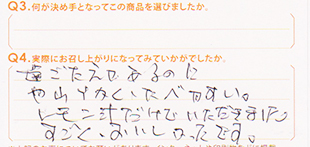 Q3.何が決め手となってこの商品を選びましたか。
Q4.実際にお召し上がりになってみていかがでしたか。
歯ごたえであるのに
やわらかくたべやすい。
レモン汁だけでいただきました
すごくおいしかったです。